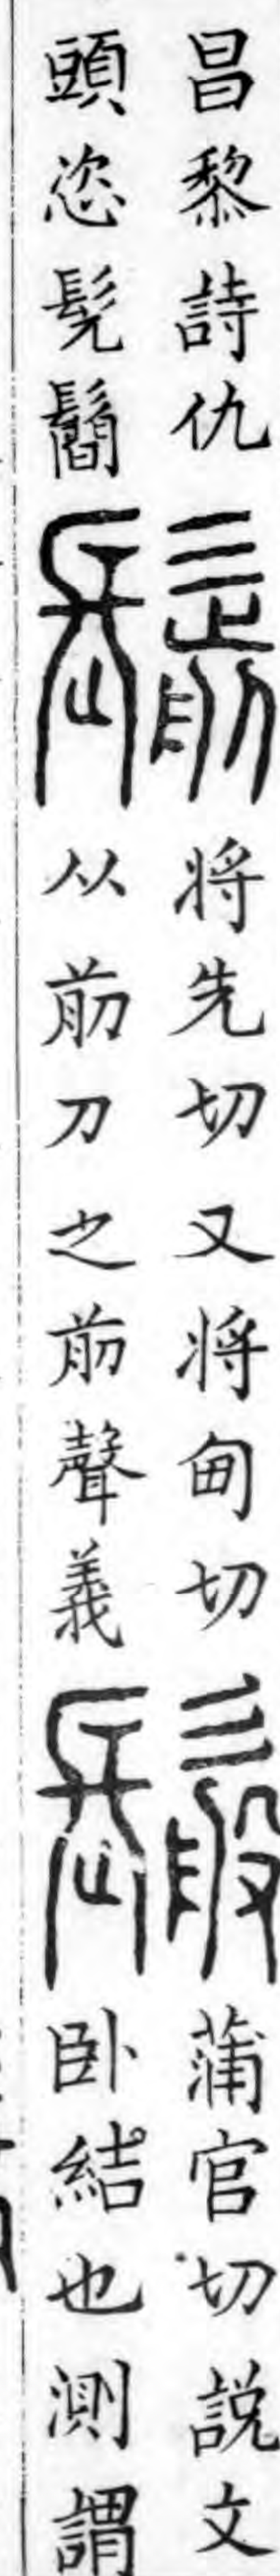 昌黎詩仇
頭恣髡鬜
鬋
将先切又将甸切
从前刀之前聲義
䰉
蒲官切説文
卧結也測謂